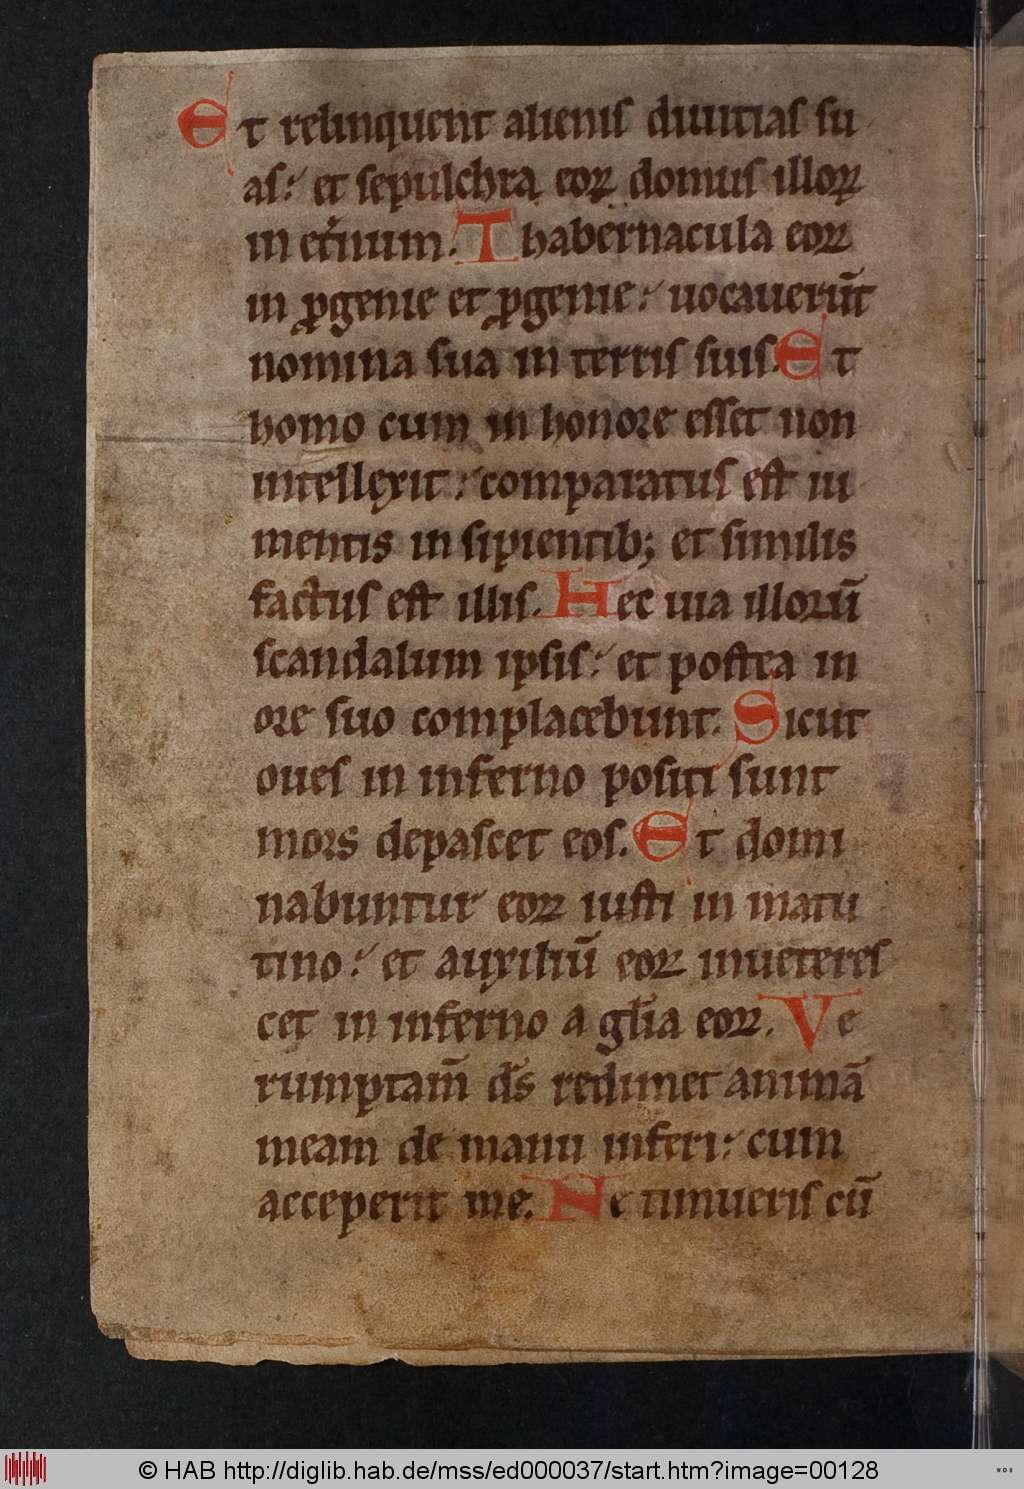 Et relinquent alienis diuitias su
as: et sepulchra eoꝝ domus illoꝝ
in et̾num. Thabernacula eoꝝ
in ꝓgenie et ꝓgenie: uocauerūt
nomina sua in terris suis. Et
homo cum in honore esset non
intellexit: comparatus est iu
mentis in sipientib; et similis
factus est illis. Hec uia illorū
scandalum ipsis: et postea in
ore suo complacebunt. Sicut
oues in inferno positi sunt
mors depascet eos. Et domi
nabuntur eoꝝ iusti in matu
tino: et auxiliū eoꝝ inueteres
cet in inferno a gl̄ia eoꝝ. Ve
rumptam̄ ds̄ redimet animā
meam de manu inferi: cum
acceperit me. Ne timueris cū
© HAB http://diglib.hab.de/mss/ed000037/start.htm?image=00128